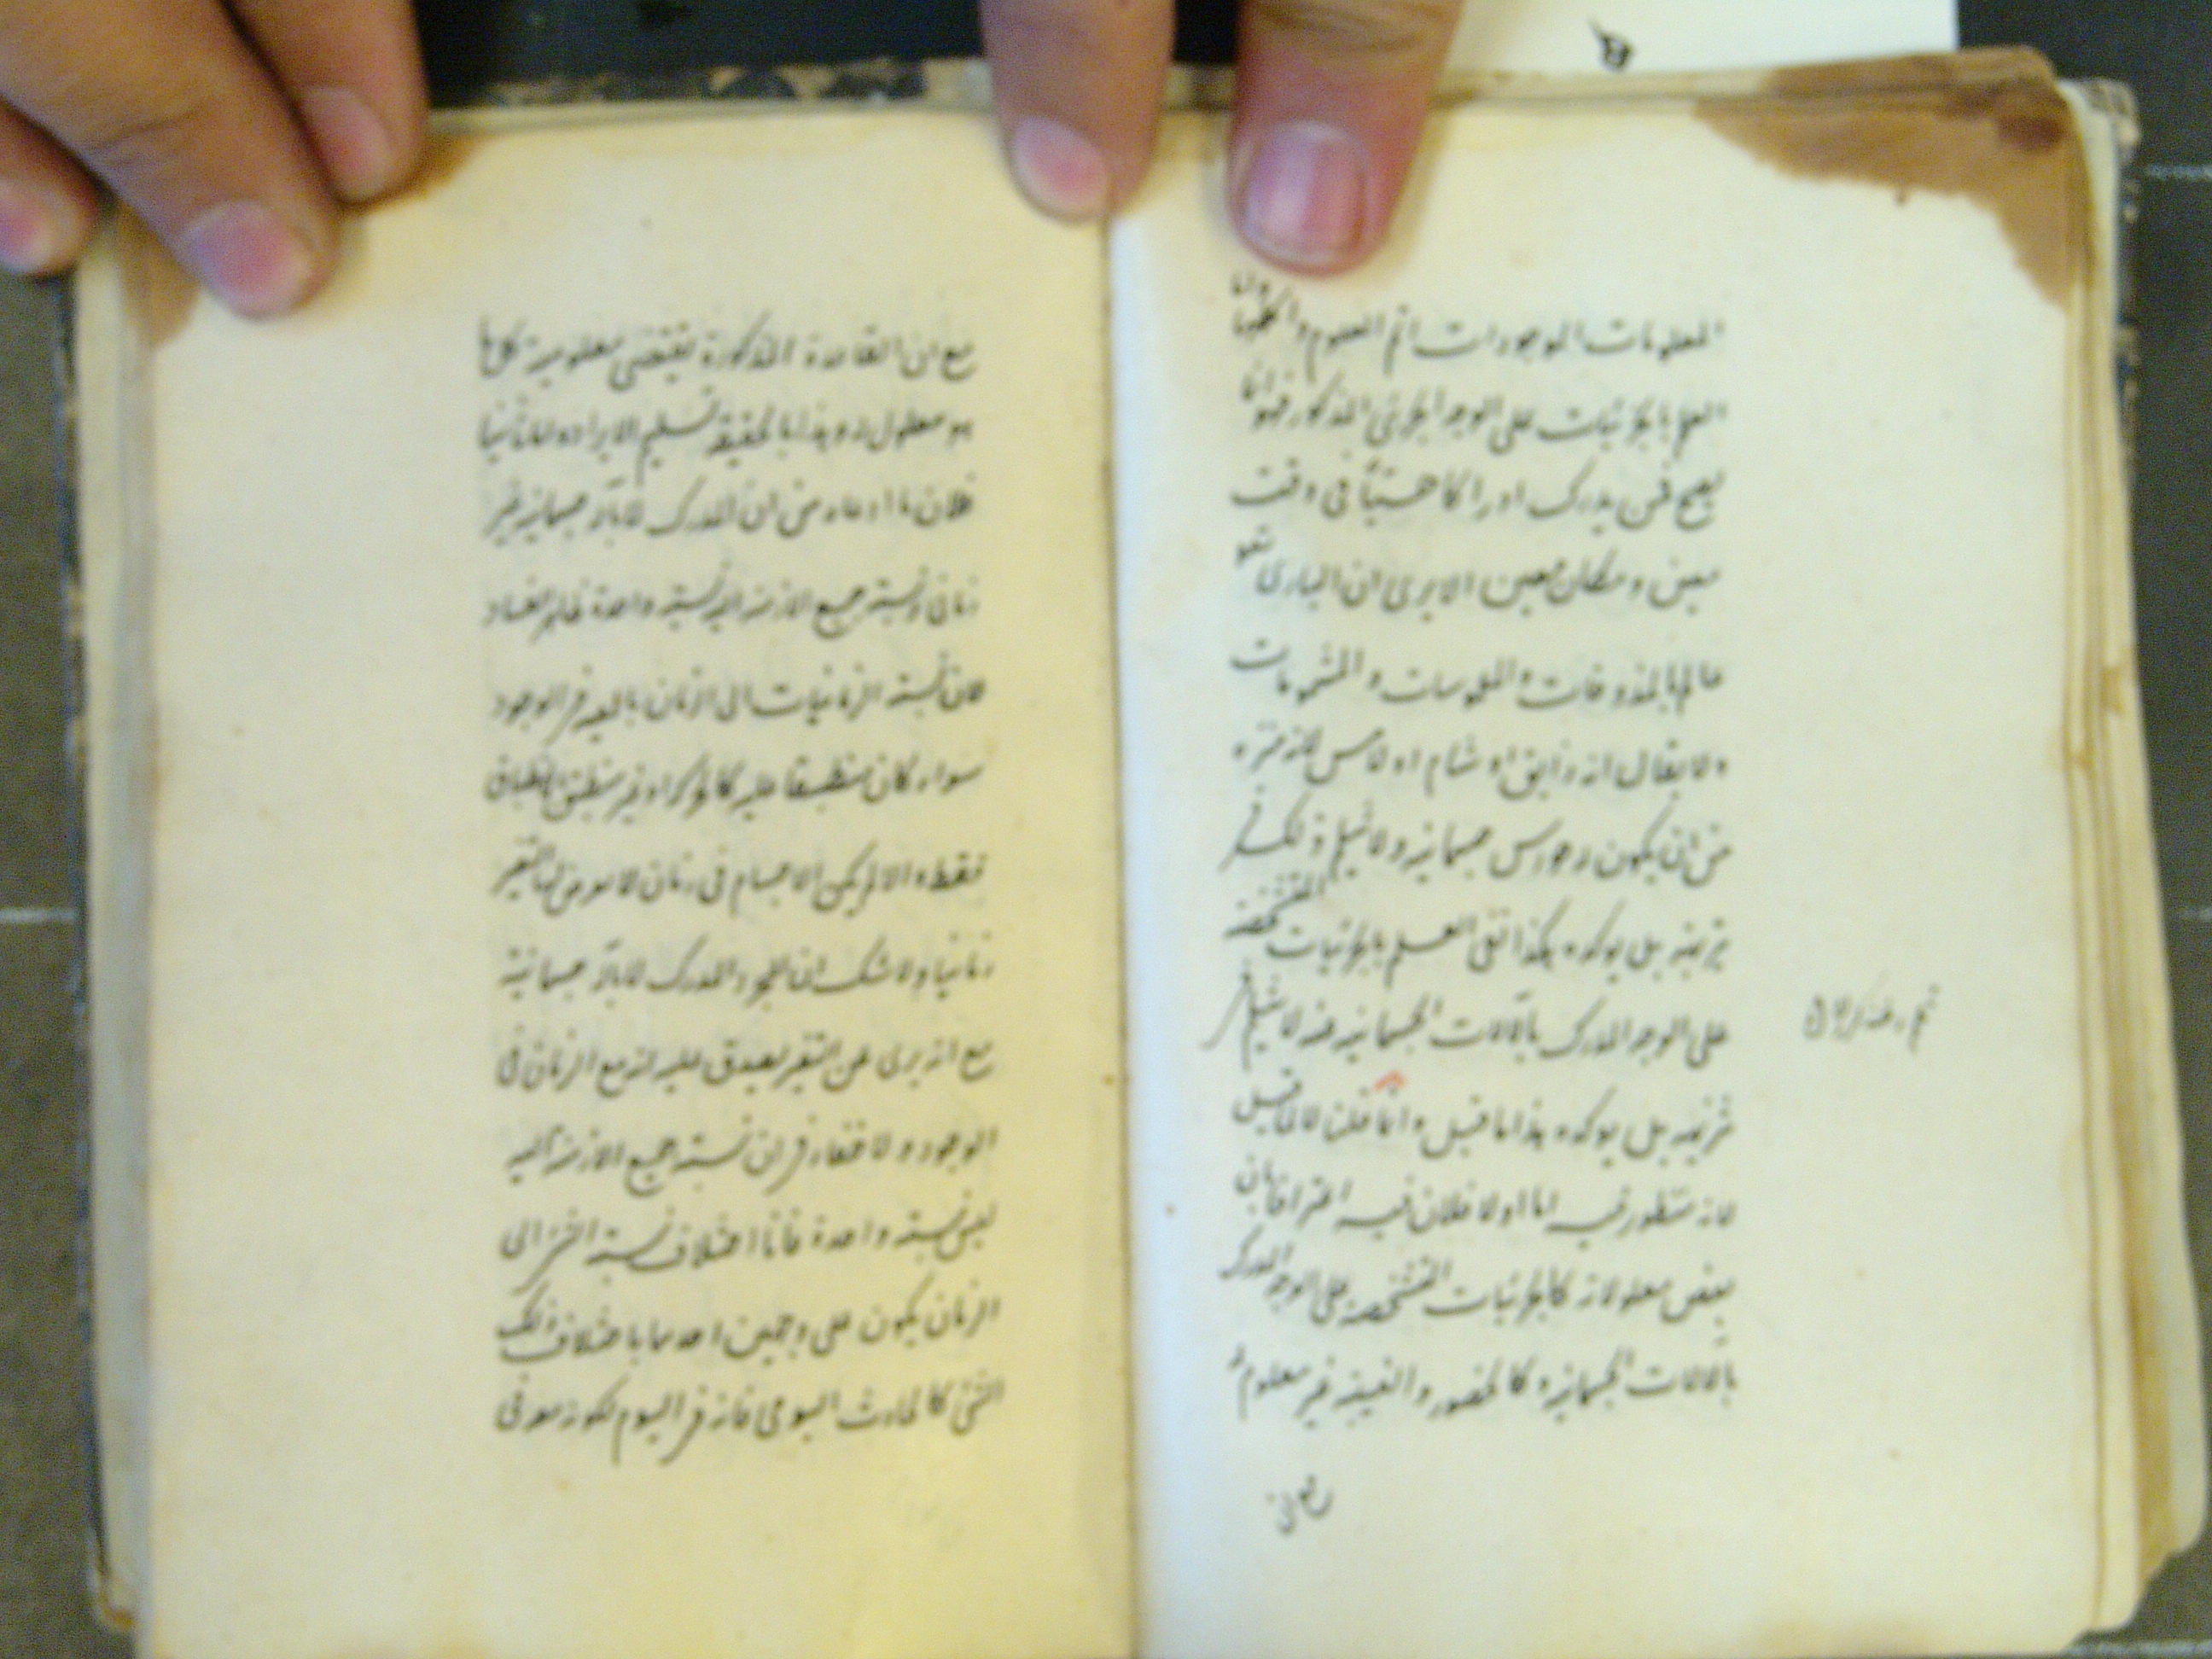 المعلومات الموجودات اتم العلوم و
العلم بالجزئيات على الوجه الجزئي المذكور فهو انما
يصح فمن يدرك ادراكا حسيا في وقت
معين ومكان معين الا يرى ان الباري تعو
عالم بالمذوقات والملموسات والمشمومات
ولا يقال انه ذايق او شام او لامس لانه منزه
من ان يكون له حواس جسمانية ولا يثلم ذلك في
تنزيهه بل يوكده وهكذا نفى العلم بالجزئيات المتشخصة
على الوجه المدرك بالآلات الجسمانية عنه لا يثلم في
تنزيهه بل يوكده هذا ما قيل وانما قلنا لا لما قيل
لانه منظور فيه اما اولا فلان فيه اعترافا بان
بعض معلولاته كالجزئيات المتشخصة على الوجه المدرك
بالالات الجسمانية وكالحضور والغيبة غير معلوم له
مع ان القاعدة المذكورة يقتضى معلومية كل ما
هو معلول له وهذا بالحقيقة تسليم الايراد واما ثانيا
فلان ما ادعاه من ان المدرك لا بآلة جسمانية غير
زماني ونسبة جميع الازمنة اليه نسبة واحدة ظاهر الفساد
فان نسبة الزمانيات الى الزمان بالمعية في الوجود
سواء كان منطبقا عليه كالحركة او غير منطبق
فقط والا لم يكن الاجسام في زمان لا يعرض لها التغير
زمانيا ولا شك ان المجرد المدرك لا بآلة جسمانية
مع انه برى عن التغير يصدق عليه انه مع الزمان في
الوجود ولا خفاء في ان نسبة جميع الازمنة اليه
ليس نسبة واحدة فانا اختلاف نسبة الشئ الى
الزمان يكون على وجهين احدهما باختلاف ذلك
الشئ كالحادث اليومي فانه في اليوم لكونه